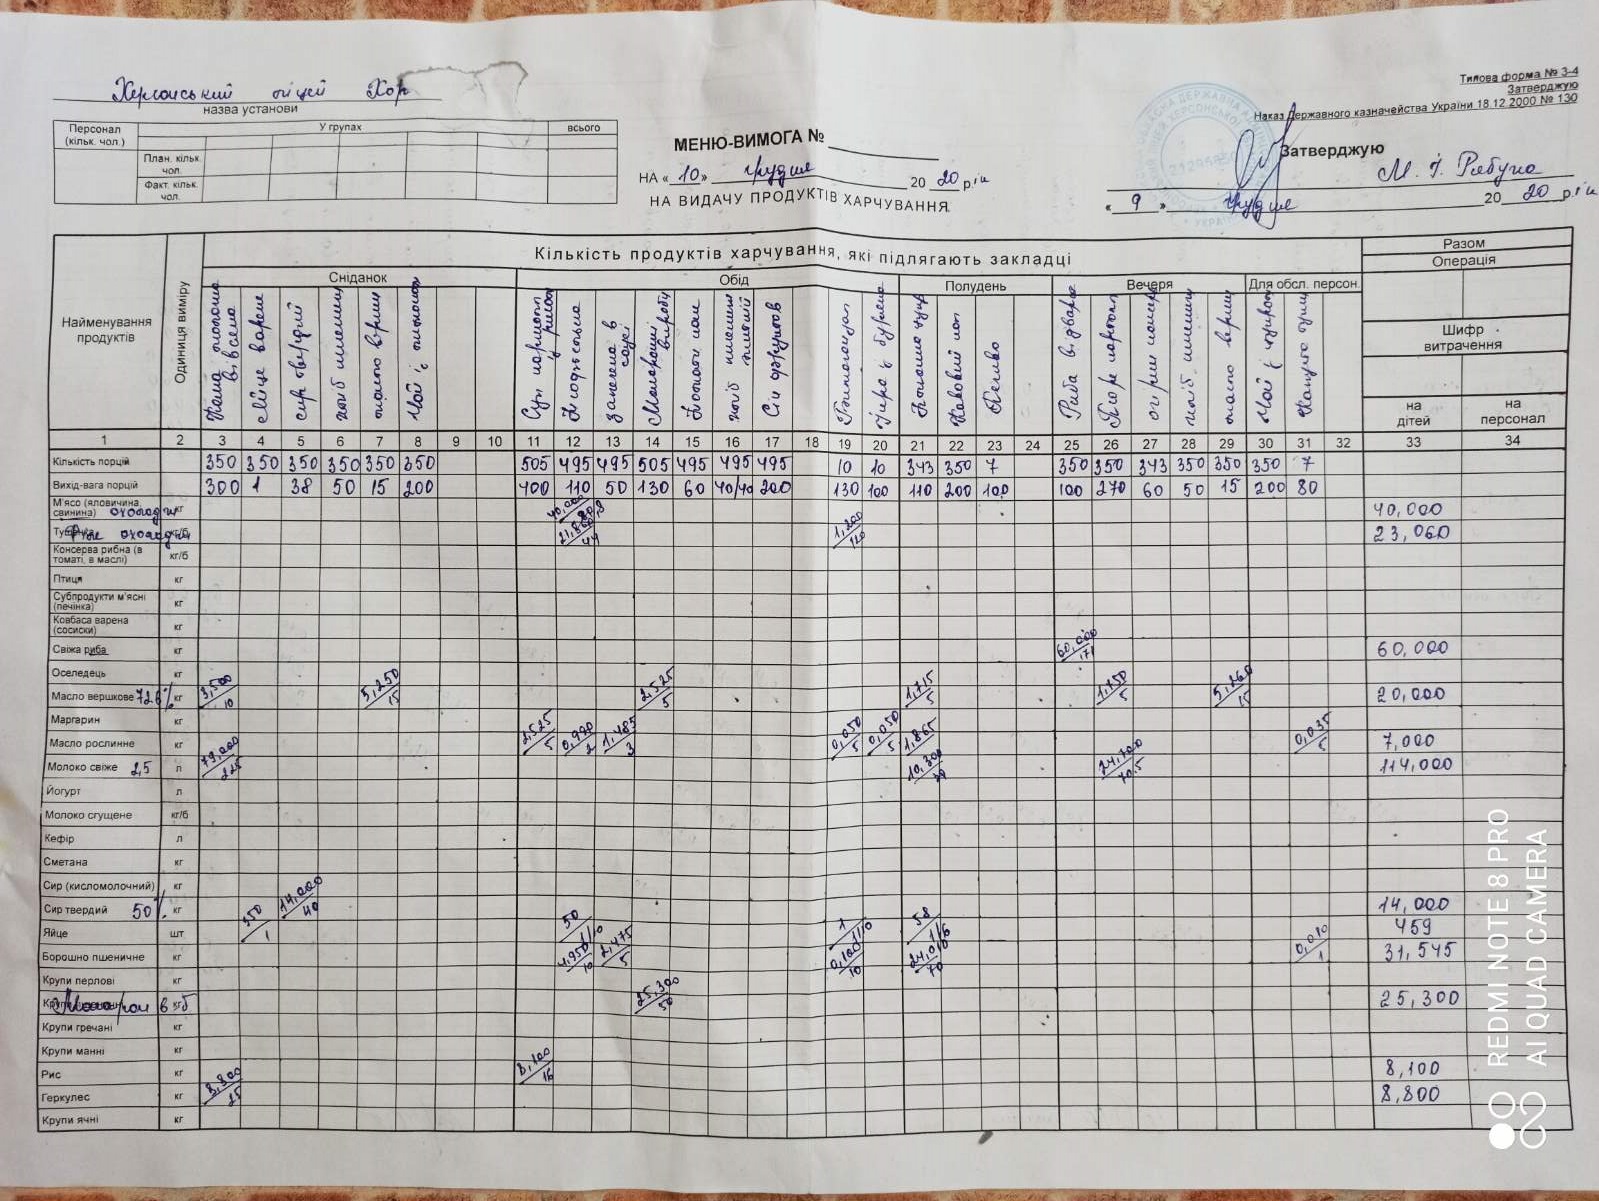 Херсонський ліцей Хор
назва установи
Типова форма № З-4
Затверджую
Наказ Державного казначейства України 18.12.2000 № 130
Персонал (кільк. чол.) У групах всього
План. кільк. чол.
Факт. кільк. чол.
МЕНЮ-ВИМОГА №
НА «10» грудня 2020 рік
НА ВИДАЧУ ПРОДУКТІВ ХАРЧУВАННЯ
Затверджую
«9» грудня 2020 рік
Найменування продуктів
Одиниця виміру
Кількість продуктів харчування, які підлягають закладці
Разом
Операція
Сніданок Обід Полудень Вечеря Для обсл. персон.
Шифр витрачення
на дітей на персонал
Яйце варене
сир твердий
хліб
масло верш
Чай з
Суп
запечена в соусі
Макаронні вироби
Сік фруктів
Какао
Печиво
Риба відварна
Пюре картоп
хліб
масло верш
Чай з
1 2 3 4 5 6 7 8 9 10 11 12 13 14 15 16 17 18 19 20 21 22 23 24 25 26 27 28 29 30 31 32 33 34
Кількість порцій 350 350 350 350 350 350 505 495 495 505 495 495 495 10 10 343 350 7 350 350 343 350 350 350 7
Вихід-вага порцій 300 1 38 50 15 200 400 110 50 130 60 40/40 200 130 100 110 200 100 100 270 60 50 15 200 80
М'ясо (яловичина, свинина) охолодж кг 40,000 40,000
охолодж кг/б 21,860/44 1,200/120 23,060
Консерва рибна (в томаті, в маслі) кг/б
Птиця кг
Субпродукти м'ясні (печінка) кг
Ковбаса варена (сосиски) кг
Свіжа риба кг 60,000/171 60,000
Оселедець кг
Масло вершкове 72,6% кг 3,500/10 5,250/15 2,525/5 1,715/5 1,750/5 5,260/15 20,000
Маргарин кг
Масло рослинне кг 2,525/5 0,990/2 1,485/3 0,050/5 0,050/5 1,865 0,035/5 7,000
Молоко свіже 2,5 л 79,000/225 10,300/30 24,700/70,5 114,000
Йогурт л
Молоко сгущене кг/б
Кефір л
Сметана кг
Сир (кисломолочний) кг
Сир твердий 50% кг 14,000/40 14,000
Яйце шт 350/1 50/1/10 1/1/10 58/1/6 459
Борошно пшеничне кг 4,950/10 2,475/5 0,100/10 24,010/70 0,010/1 31,545
Крупи перлові кг
Макарон в б кг 25,300/50 25,300
Крупи гречані кг
Крупи манні кг
Рис кг 8,100/16 8,100
Геркулес кг 8,800/25 8,800
Крупи ячні кг
REDMI NOTE 8 PRO
AI QUAD CAMERA